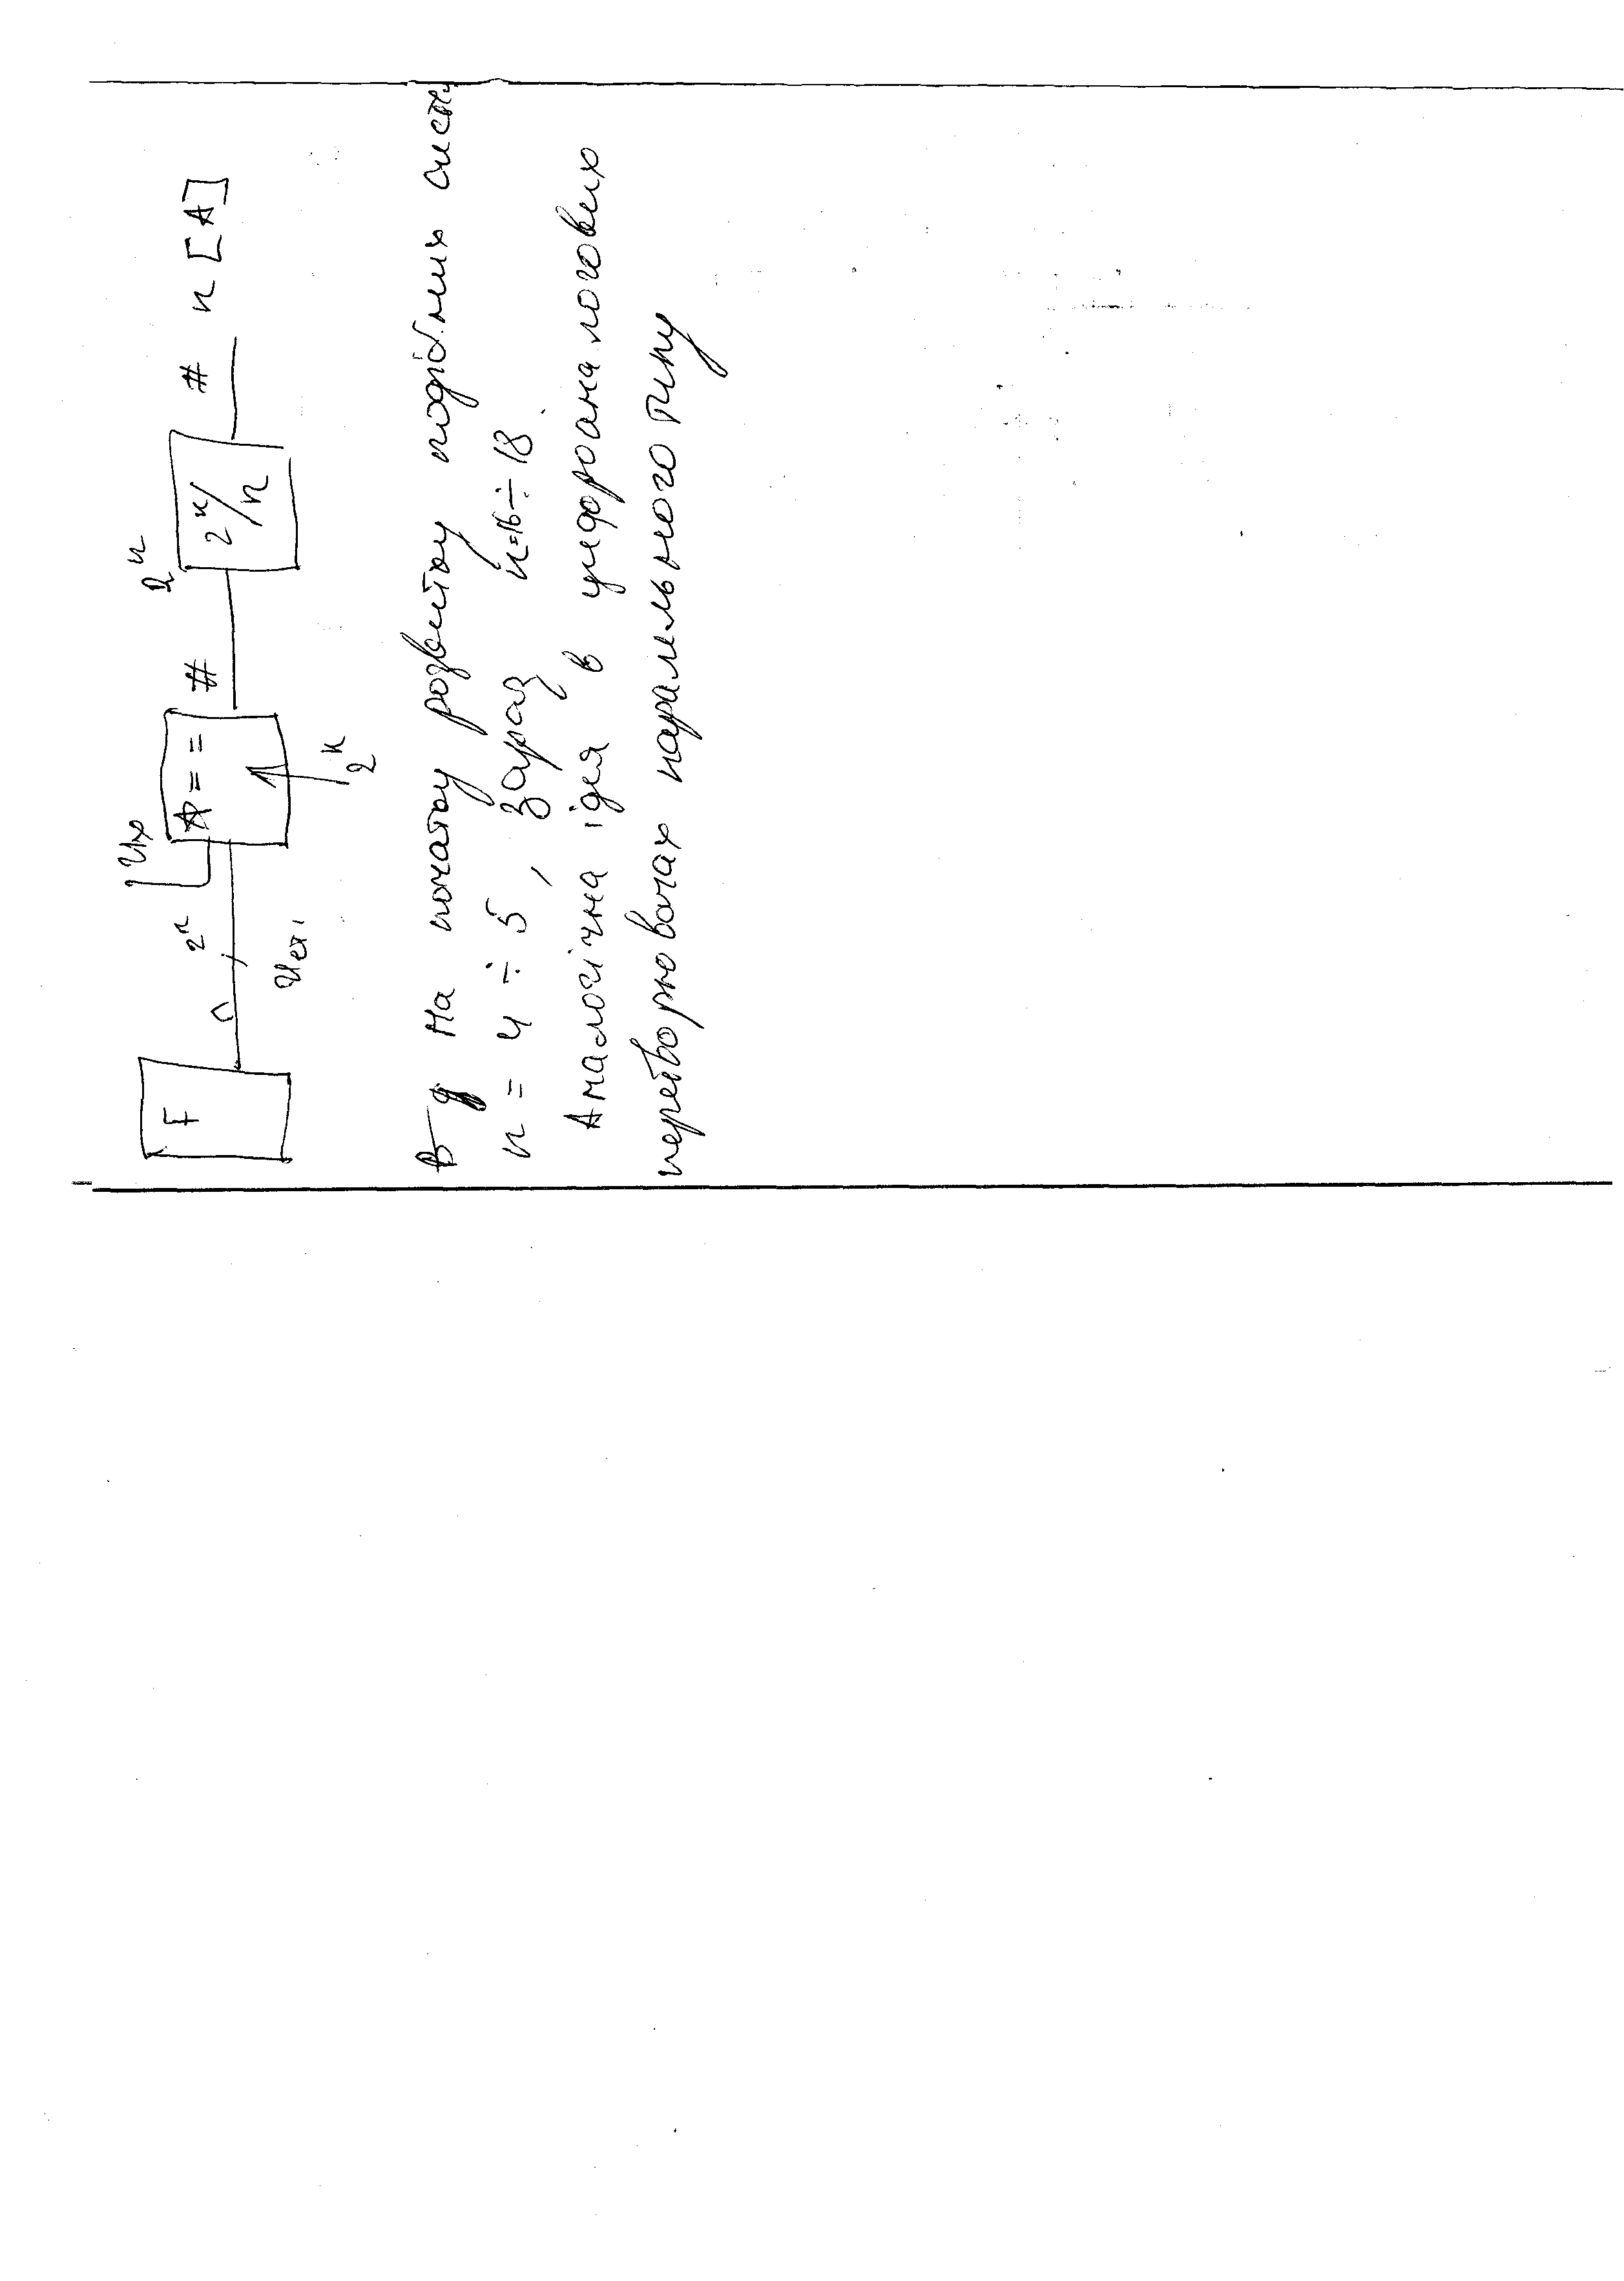 Uх 2ⁿ
F ∩ 2ⁿ A == # 2ⁿ/n # n [A]
Uет 2ⁿ
В На початку розвитку подібних систе
n = 4 ÷ 5, зараз n=16÷18.
Аналогічна ідея в цифроаналогових
перетворювачах паралельного типу